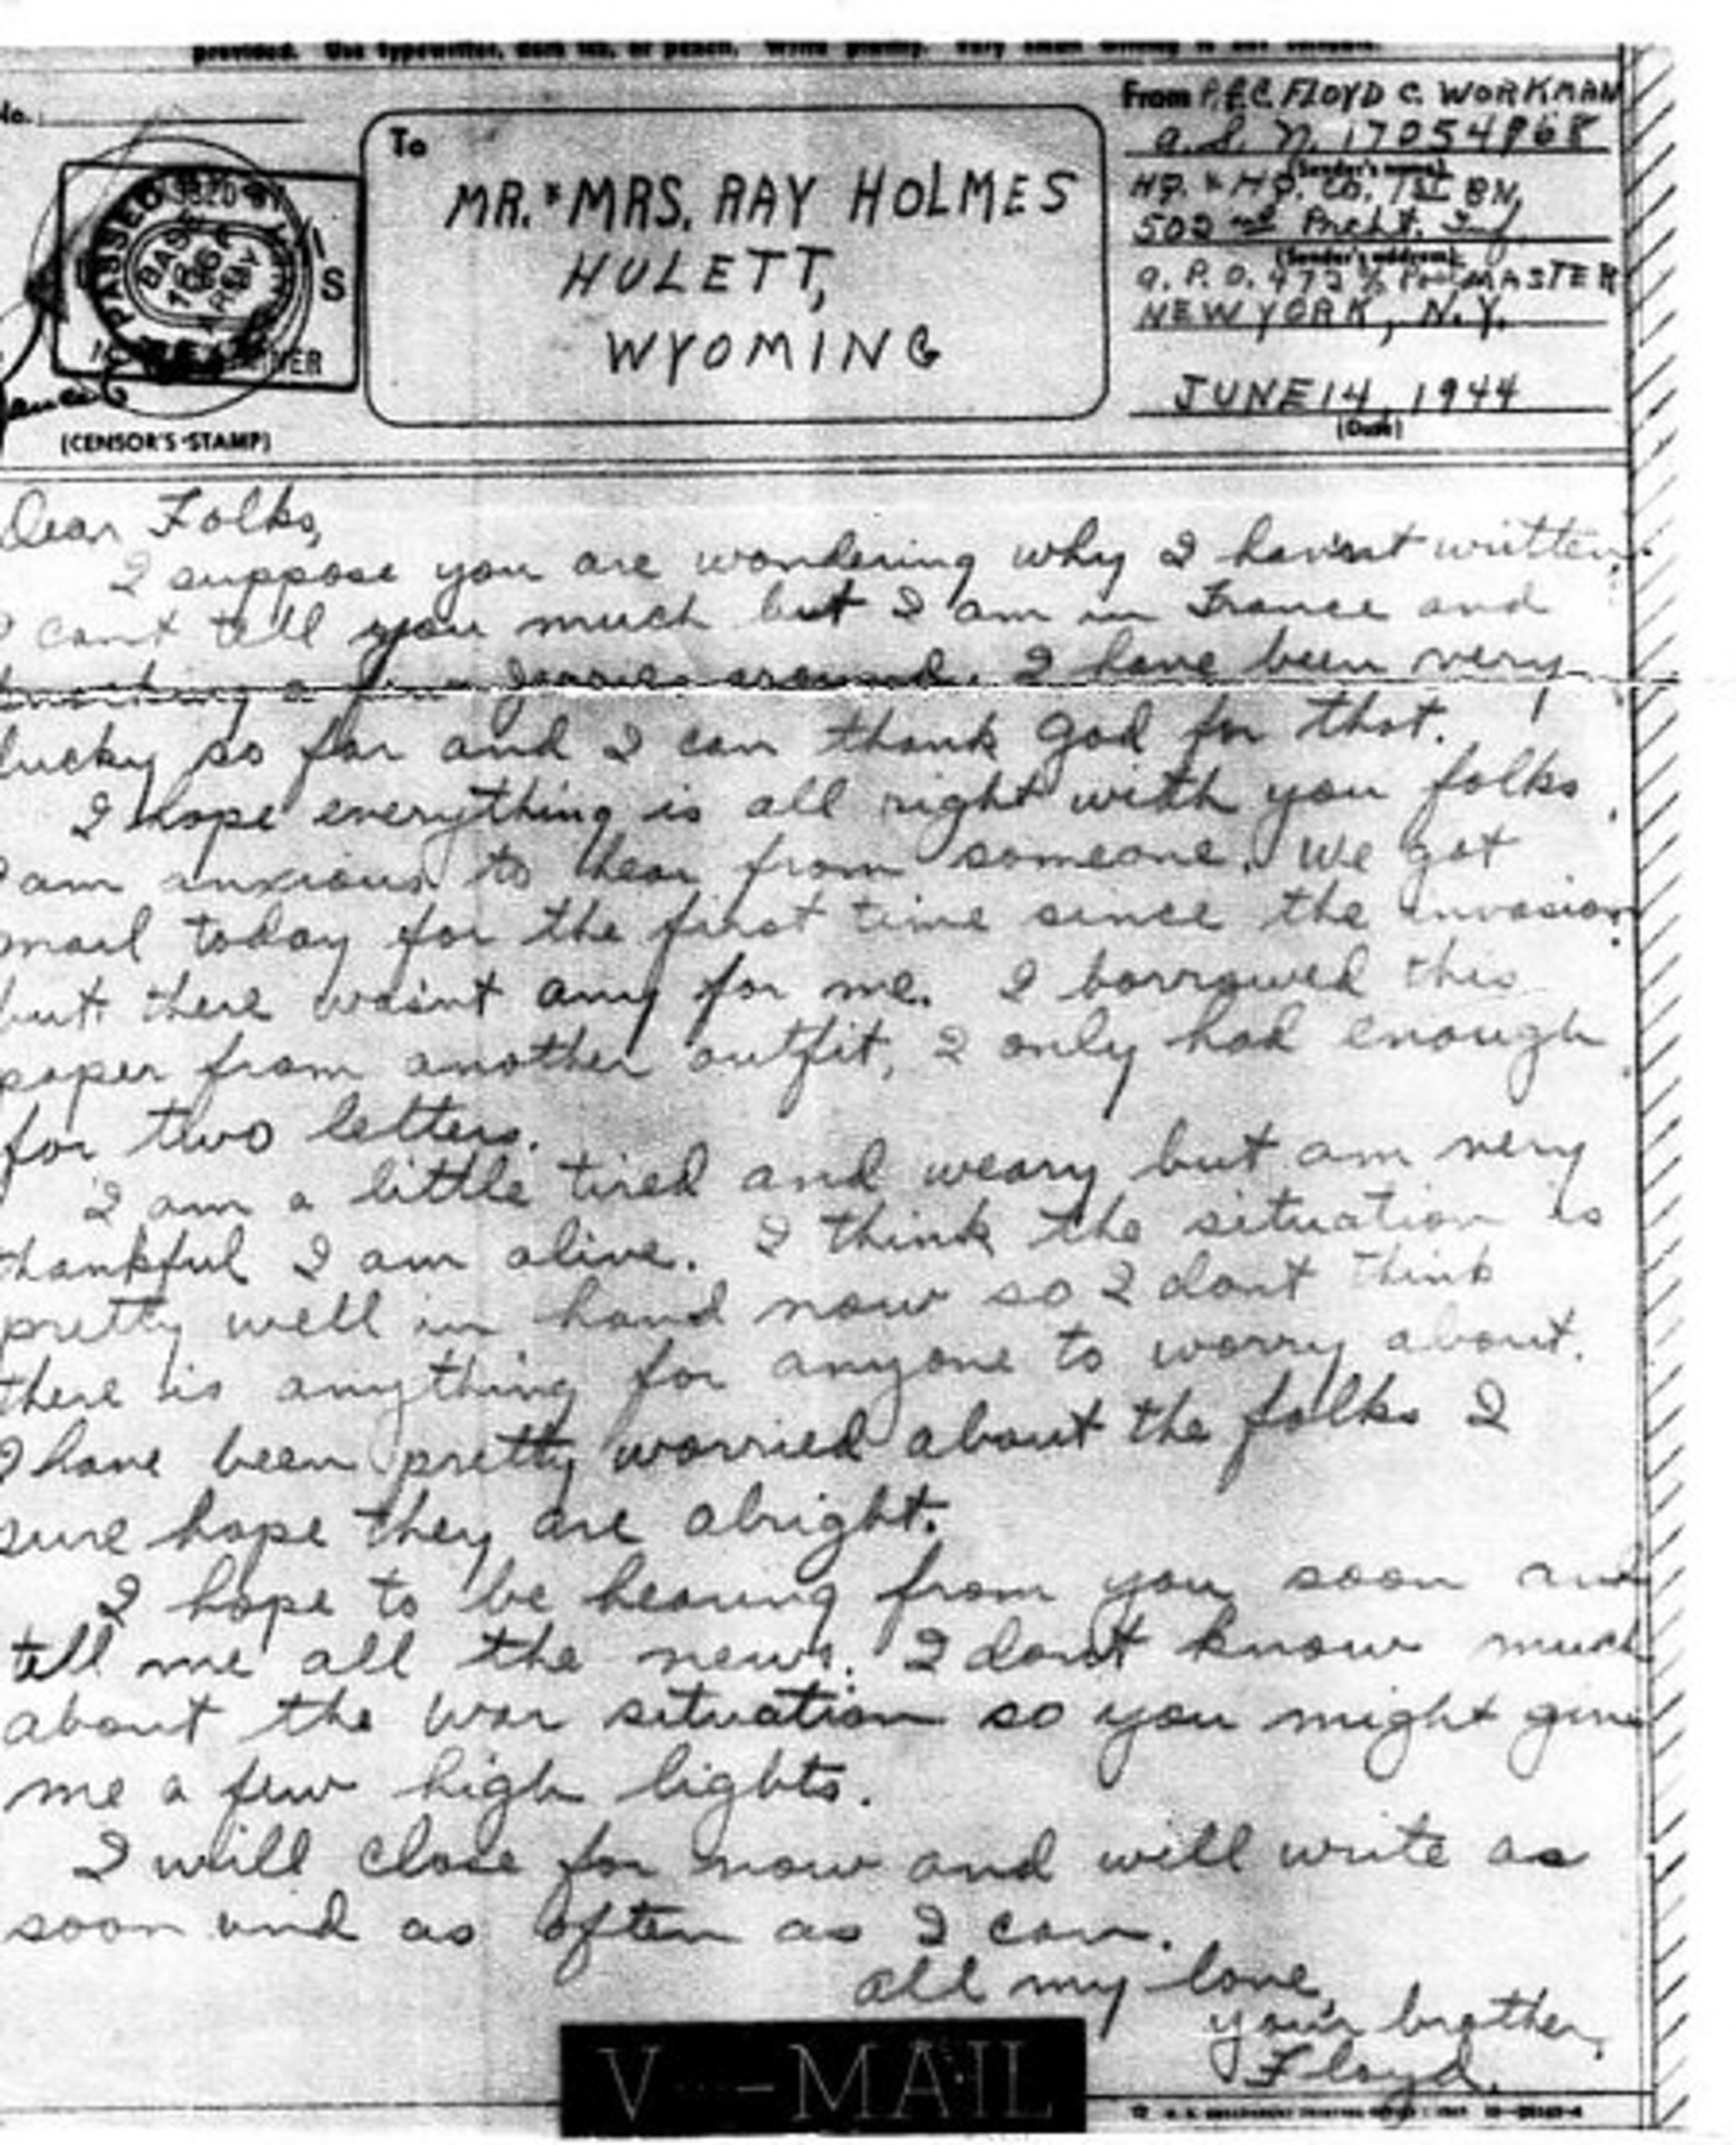 provided. Use typewriter, dark ink, or pencil. Write plainly. Very small writing is not suitable.
No.
From P.F.C. FLOYD C. WORKMAN
A.S.N. 17054868
(Sender's name)
HQ. & HQ. CO. 1ST BN,
502nd Prcht. Inf.
(Sender's address)
A.P.O. 472 % POSTMASTER
NEW YORK, N.Y.
JUNE 14, 1944
(Date)
To
MR. & MRS. RAY HOLMES
HULETT,
WYOMING
PASSED BY
BASE
ARMY
EXAMINER
S
(CENSOR'S STAMP)
Dear Folks,
I suppose you are wondering why I haven't written.
I can't tell you much but I am in France and
knocking a few Jerries around. I have been very
lucky so far and I can thank God for that.
I hope everything is all right with you folks
I am anxious to hear from someone. We got
mail today for the first time since the invasion
but there wasn't any for me. I borrowed this
paper from another outfit, I only had enough
for two letters.
I am a little tired and weary but am very
thankful I am alive. I think the situation is
pretty well in hand now so I don't think
there is anything for anyone to worry about.
I have been pretty worried about the folks I
sure hope they are alright.
I hope to be hearing from you soon and
tell me all the news. I don't know much
about the war situation so you might give
me a few high lights.
I will close for now and will write as
soon and as often as I can.
All my love,
your brother,
Floyd.
V---MAIL